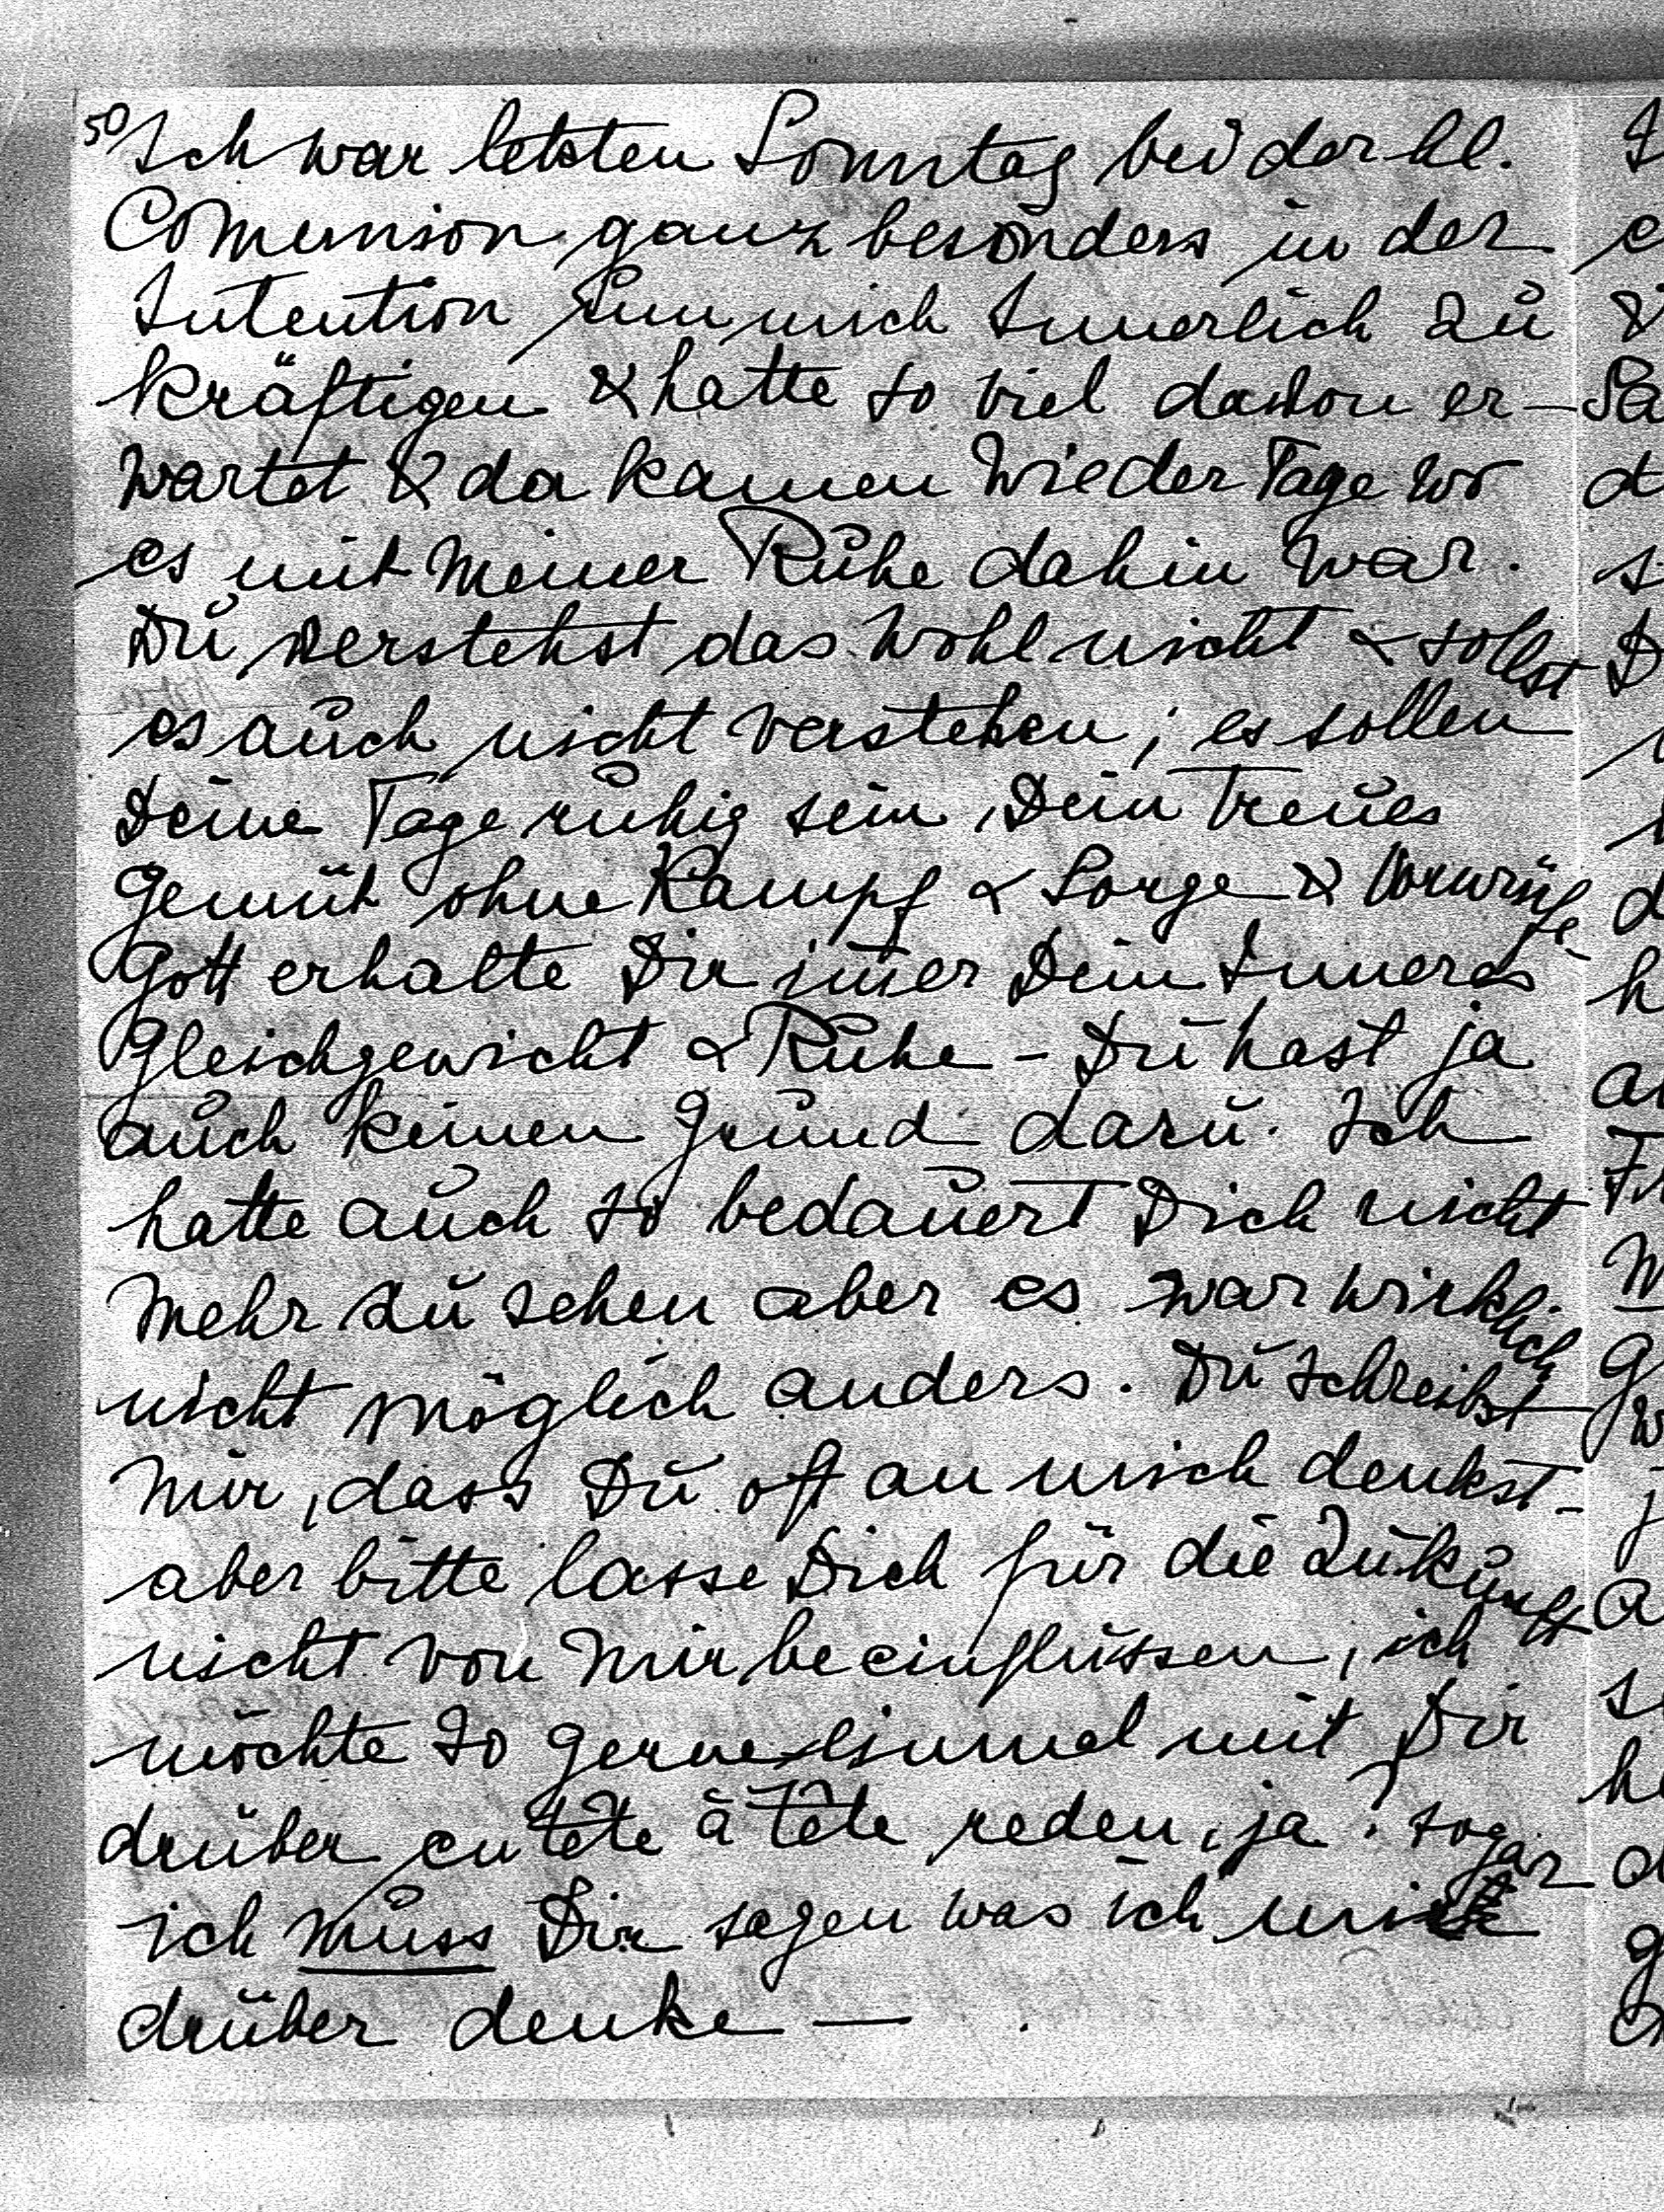 50
Ich war letzten Sonntag bei der hl.
Comunion ganz besonders in der
Intention um mich Innerlich zu
kräftigen & hatte so viel davon er-
wartet & da kamen wieder Tage wo
es mit meiner Ruhe dahin war.
Du verstehst das wohl nicht & sollst
es auch nicht verstehen; es sollen
Deine Tage ruhig sein, Dein Treues
Gemüt ohne Kampf & Sorge & Vorwürfe
Gott erhalte Dir imer Dein Inneres
Gleichgewicht & Ruhe - Du hast ja
auch keinen Grund dazu. Ich
hatte auch so bedauert Dich nicht
mehr zu sehen aber es war wirklich
nicht möglich anders. Du schreibst
mir, dass Du oft an mich denkst -
aber bitte lasse Dich für die Zukunft
nicht von mir beeinflussen, ich
möchte so gerne einmal mit Dir
drüber en tête à tête reden, ja? sogar
ich muss Dir sagen was ich
drüber denke —